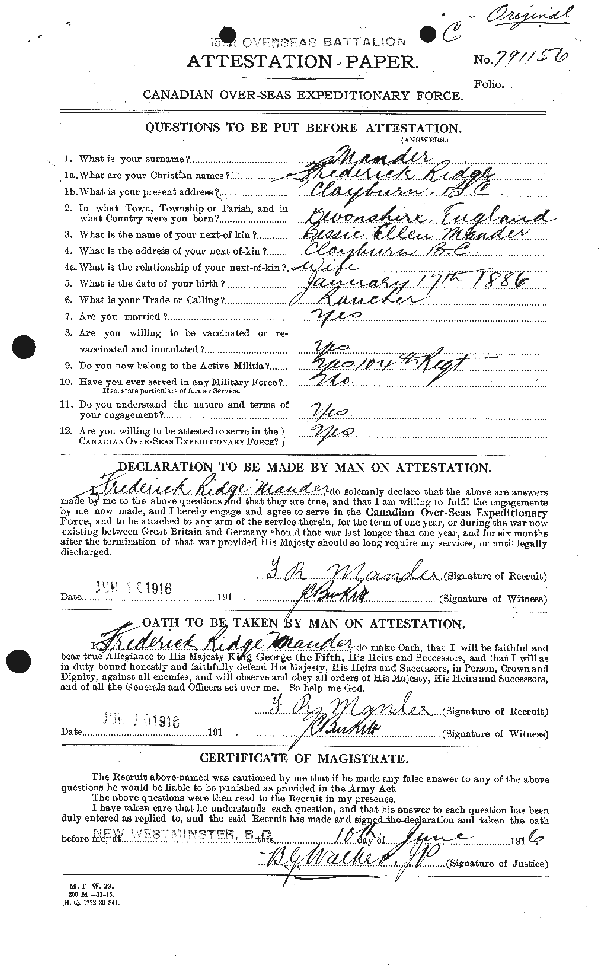 Original
C
OVERSEAS BATTALION
ATTESTATION PAPER.
No. 791156
Folio.
CANADIAN OVER-SEAS EXPEDITIONARY FORCE.
QUESTIONS TO BE PUT BEFORE ATTESTATION.
(ANSWERS)
1. What is your surname? Mander
1a. What are your Christian names? Frederick Ridge
1b. What is your present address? Clayburn. B.C
2. In what Town, Township or Parish, and in
what Country were you born? Devonshire, England
3. What is the name of your next-of-kin? Bessie Ellen Mander
4. What is the address of your next-of-kin? Clayburn B.C
4a. What is the relationship of your next-of-kin? Wife
5. What is the date of your birth? January 17th 1886
6. What is your Trade or Calling? Rancher
7. Are you married? Yes
8. Are you willing to be vaccinated or re-
vaccinated and inoculated? Yes
9. Do you now belong to the Active Militia? Yes 104th Regt
10. Have you ever served in any Military Force? No
If so, state particulars of former Service.
11. Do you understand the nature and terms of
your engagement? Yes
12. Are you willing to be attested to serve in the
CANADIAN OVER-SEAS EXPEDITIONARY FORCE? Yes
DECLARATION TO BE MADE BY MAN ON ATTESTATION.
I, Frederick Ridge Mander do solemnly declare that the above are answers
made by me to the above questions and that they are true, and that I am willing to fulfil the engagements
by me now made, and I hereby engage and agree to serve in the Canadian Over-Seas Expeditionary
Force, and to be attached to any arm of the service therein, for the term of one year, or during the war now
existing between Great Britain and Germany should that war last longer than one year, and for six months
after the termination of that war provided His Majesty should so long require my services, or until legally
discharged.
F R Mander (Signature of Recruit)
Date JUN 10 1916 191 (Signature of Witness)
OATH TO BE TAKEN BY MAN ON ATTESTATION.
I, Frederick Ridge Mander do make Oath, that I will be faithful and
bear true Allegiance to His Majesty King George the Fifth, His Heirs and Successors, and that I will as
in duty bound honestly and faithfully defend His Majesty, His Heirs and Successors, in Person, Crown and
Dignity, against all enemies, and will observe and obey all orders of His Majesty, His Heirs and Successors,
and of all the Generals and Officers set over me. So help me God.
F R Mander (Signature of Recruit)
Date JUN 10 1916 191 (Signature of Witness)
CERTIFICATE OF MAGISTRATE.
The Recruit above-named was cautioned by me that if he made any false answer to any of the above
questions he would be liable to be punished as provided in the Army Act.
The above questions were then read to the Recruit in my presence.
I have taken care that he understands each question, and that his answer to each question has been
duly entered as replied to, and the said Recruit has made and signed the declaration and taken the oath
before me, at NEW WESTMINSTER, B.C. this 10th day of June 1916
(Signature of Justice)
M. F. W. 23.